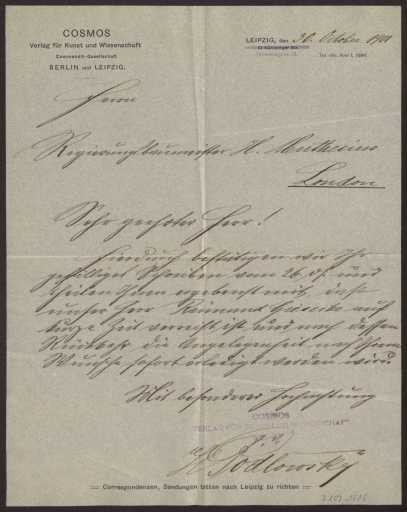 COSMOS
Verlag für Kunst und Wissenschaft
Commandit-Gesellschaft
BERLIN und LEIPZIG.
LEIPZIG, den 30. October 1901
Herrn
Regierungsbaumeister H. Muthesius
London
Sehr geehrter Herr!
Hierdurch bestätigen wir Ihr
gefälliges Schreiben vom 26. ds. und
theilen Ihnen ergebenst mit, dass
unser Herr Raimund auf
kurze Zeit verreist ist und nach dessen
Rückkehr die Angelegenheit nach Ihrem
Wunsche sofort erledigt werden wird.
Mit besonderer Hochachtung
COSMOS
VERLAG FÜR KUNST UND WISSENSCHAFT
Podlowsky
Correspondenzen, Sendungen bitten nach Leipzig zu richten